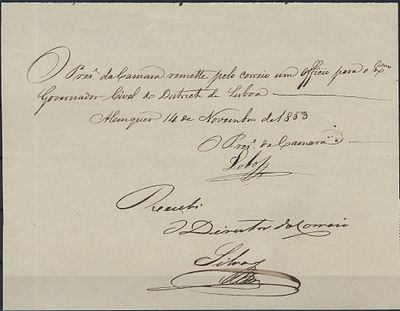 O Presᵉ da Camara remette pelo correio um Officio para o Exmo
Governador Civel do Districto de Lisboa
Alemquer 14 de Novembro de 1853
O Presᵉ da Camara
Recebi
O Director do Correio
Silva